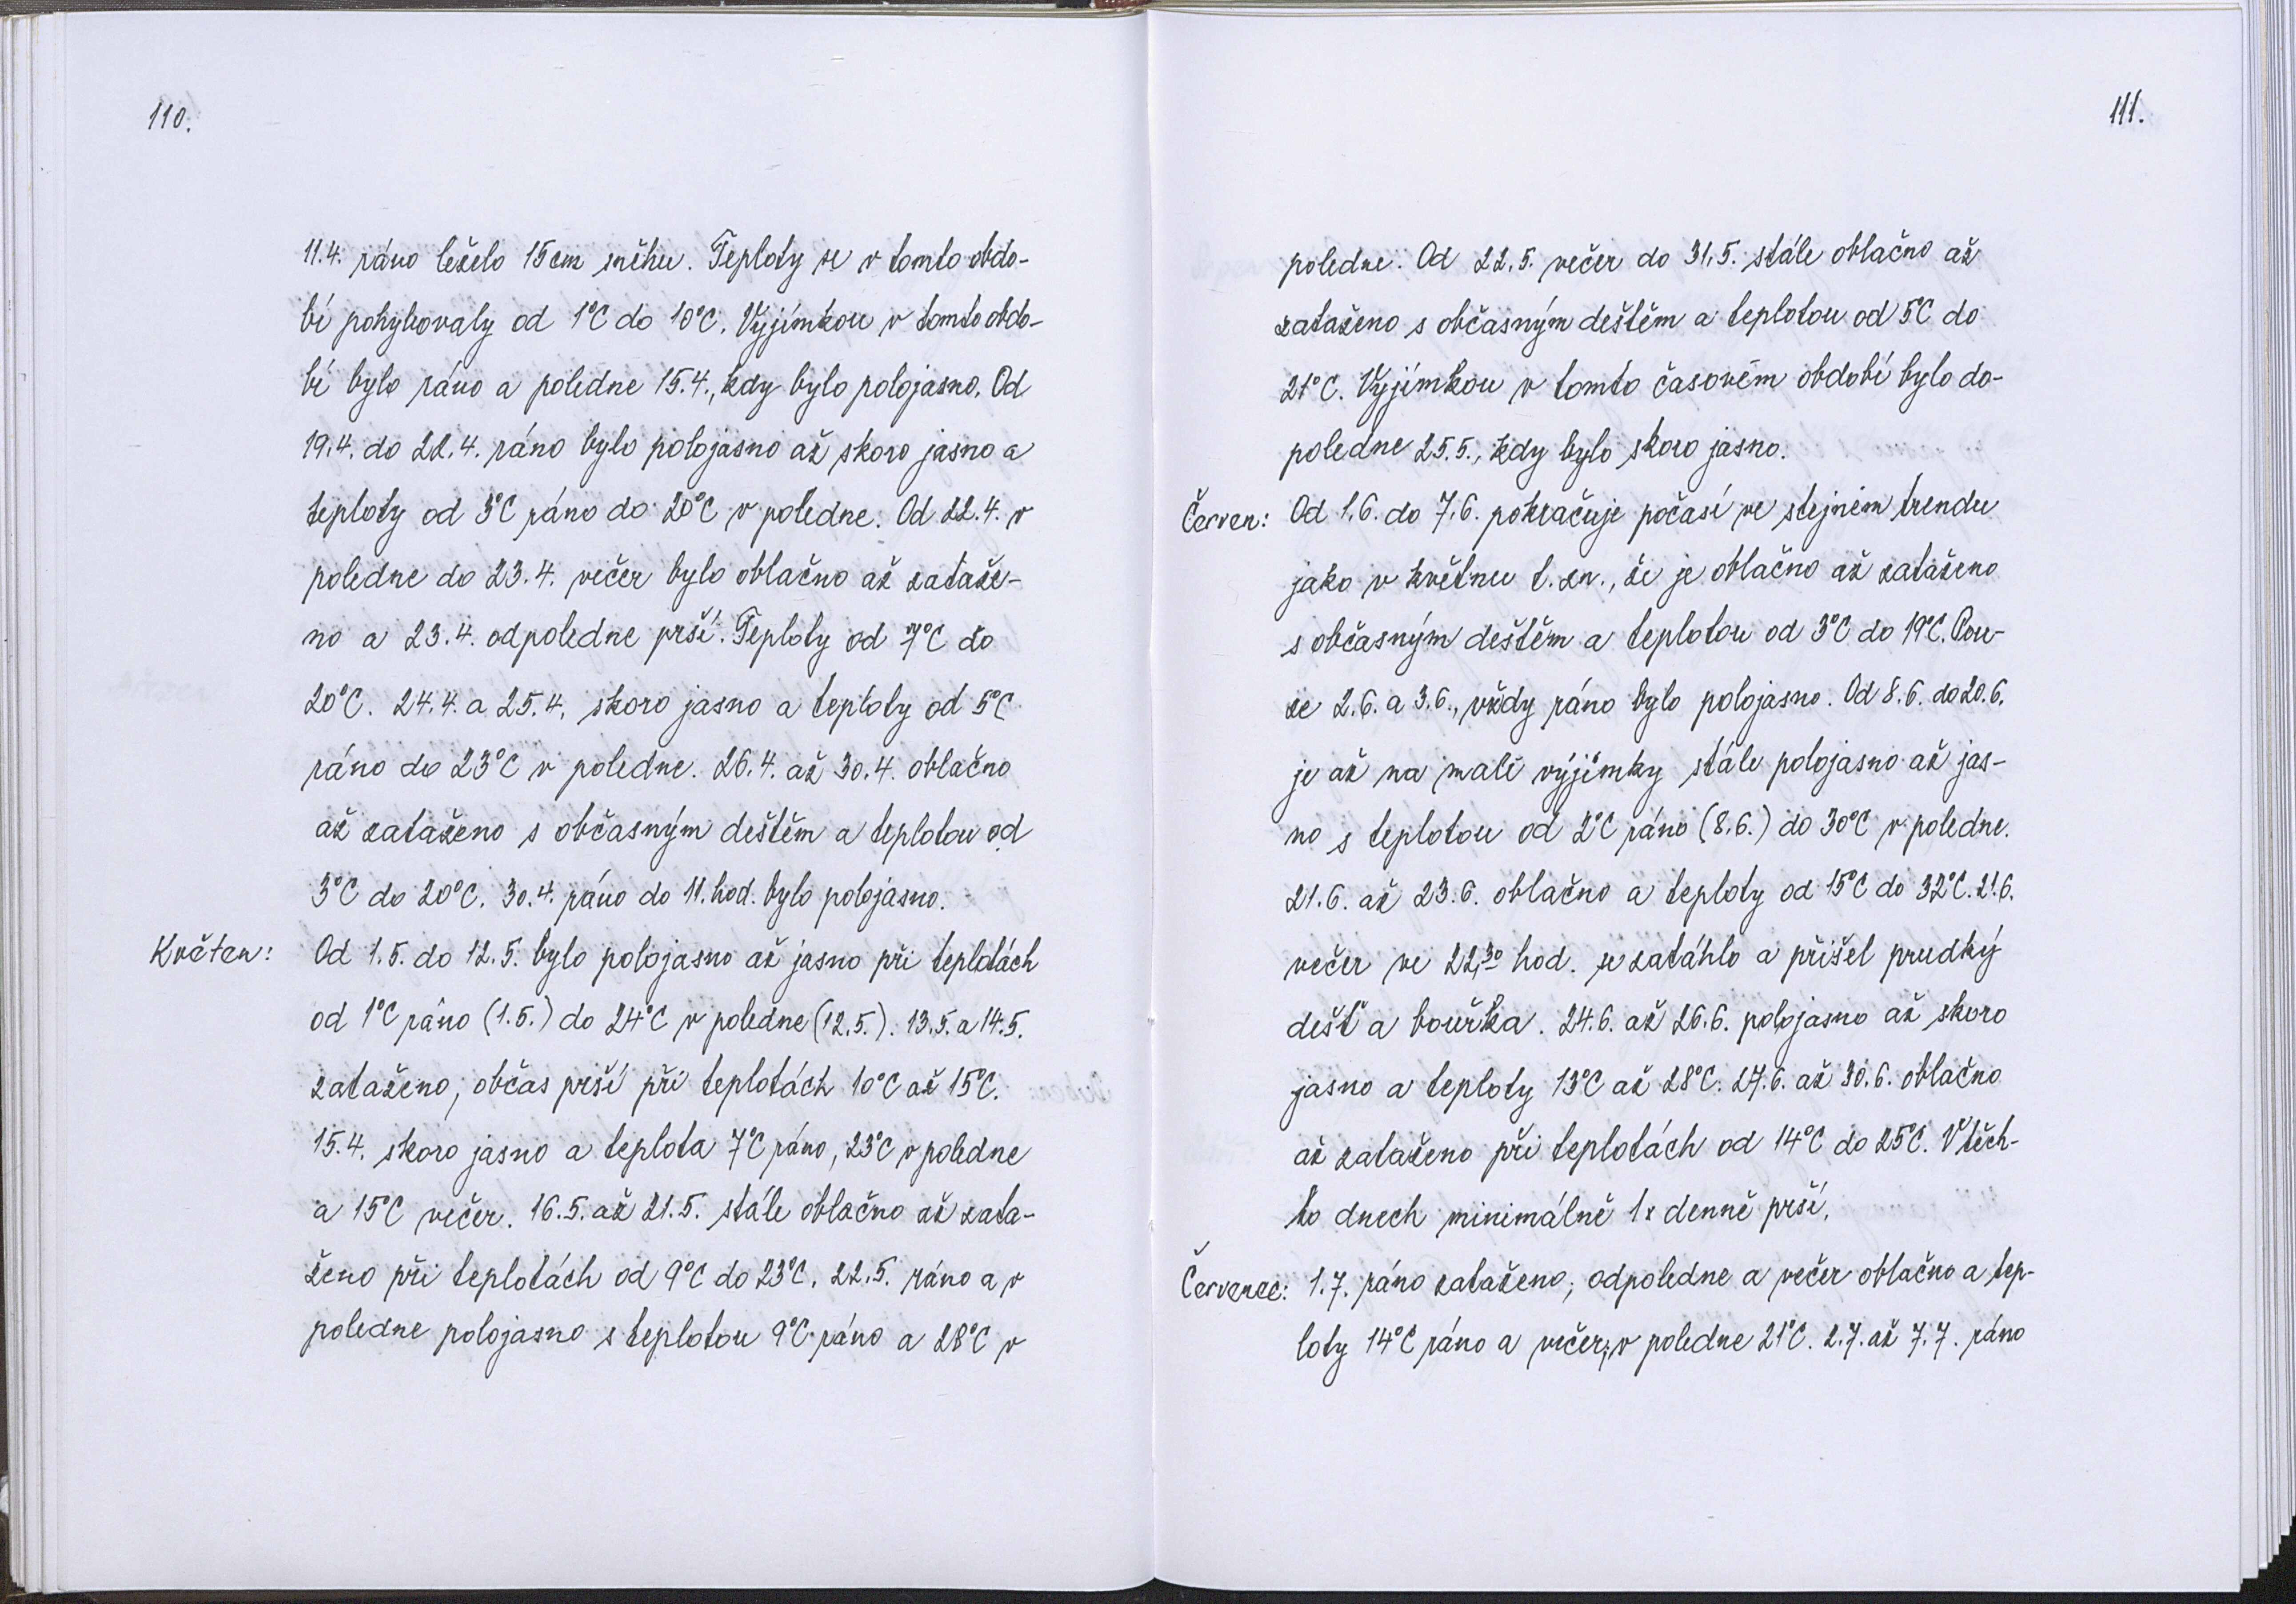 110.
11.4. ráno leželo 15cm sněhu. Teploty se v tomto obdo-
bí pohybovaly od 1°C do 10°C. Vyjímkou v tomto obdo-
bí bylo ráno a poledne 15.4., kdy bylo polojasno. Od
19.4. do 22.4. ráno bylo polojasno až skoro jasno a
teploty od 3°C ráno do 20°C v poledne. Od 22.4. v
poledne do 23.4. večer bylo oblačno až zataže-
no a 23.4. odpoledne prší. Teploty od 7°C do
20°C. 24.4. a 25.4. skoro jasno a teploty od 5°C
ráno do 23°C v poledne. 26.4. až 30.4. oblačno
až zataženo s občasným deštěm a teplotou od
3°C do 20°C. 30.4. ráno do 11.hod. bylo polojasno.
Květen: Od 1.5. do 12.5. bylo polojasno až jasno při teplotách
od 1°C ráno (1.5.) do 24°C v poledne (12.5.). 13.5. a 14.5.
zataženo, občas prší při teplotách 10°C až 15°C.
15.4. skoro jasno a teplota 7°C ráno, 23°C v poledne
a 15°C večer. 16.5. až 21.5. stále oblačno až zata-
ženo při teplotách od 9°C do 23°C. 22.5. ráno a v
poledne polojasno s teplotou 9°C ráno a 28°C v
111.
poledne. Od 22.5. večer do 31.5. stále oblačno až
zataženo s občasným deštěm a teplotou od 5°C do
21°C. Vyjímkou v tomto časovém období bylo do-
poledne 25.5., kdy bylo skoro jasno.
Červen: Od 1.6. do 7.6. pokračuje počasí ve stejném trendu
jako v květnu t.zn., že je oblačno až zataženo
s občasným deštěm a teplotou od 3°C do 19°C. Pou-
ze 2.6. a 3.6., vždy ráno bylo polojasno. Od 8.6. do 20.6.
je až na malé výjimky stále polojasno až jas-
no s teplotou od 2°C ráno (8.6.) do 30°C v poledne.
21.6. až 23.6. oblačno a teploty od 15°C do 32°C. 21.6.
večer ve 22,30 hod. se zatáhlo a přišel prudký
déšť a bouřka. 24.6. až 26.6. polojasno až skoro
jasno a teploty 13°C až 28°C. 27.6. až 30.6. oblačno
až zataženo při teplotách od 14°C do 25°C. V těch-
to dnech minimálně 1x denně prší.
Červenec: 1.7. ráno zataženo, odpoledne a večer oblačno a tep-
loty 14°C ráno a večer, v poledne 21°C. 2.7. až 7.7. ráno